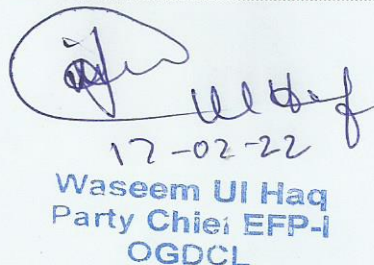 Ul Haq
17-02-22
Waseem Ul Haq
Party Chief EFP-I
OGDCL